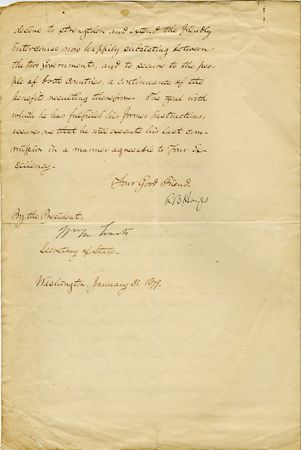 desire to strengthen and extend the friendly
intercourse now happily subsisting between
the two Governments, and to secure to the peo-
ple of both Countries a continuance of the
benefit resulting therefrom. The zeal with
which he has fulfilled his former instructions,
assures me that he will execute his last com-
mission in a manner agreeable to Your Ex-
cellency.
Your Good Friend,
R B Hayes
By the President,
Wm M. Evarts
Secretary of State.
Washington, January 31, 1879.